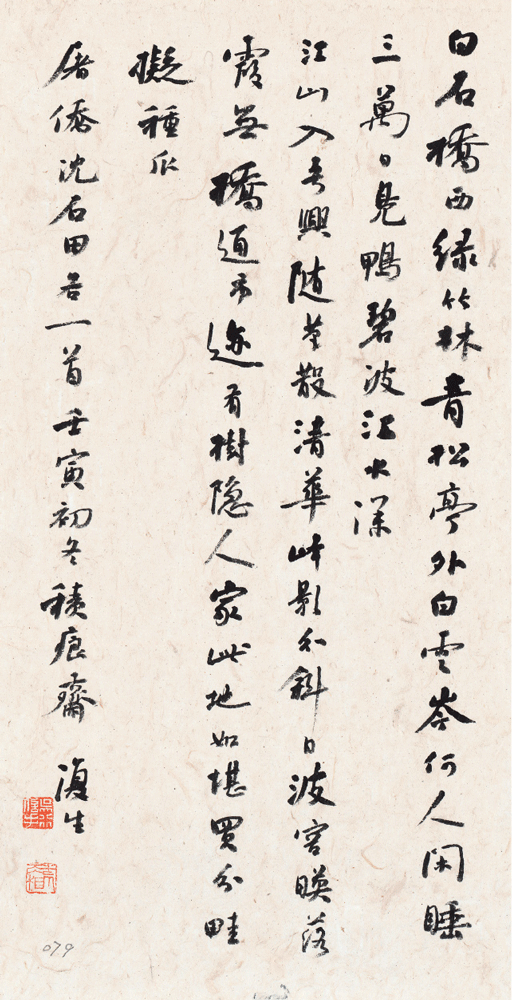 白石橋西綠竹林青松亭外白雲岑何人閑睡
三萬日見鴨碧波江水深
江山入吾興隨筆散清華峰影分斜日波容暎落
霞無橋通市迹有樹隱人家此地如堪買分畦
擬種瓜
屠僑沈石田各一首壬寅初冬積痕齋 復生
079